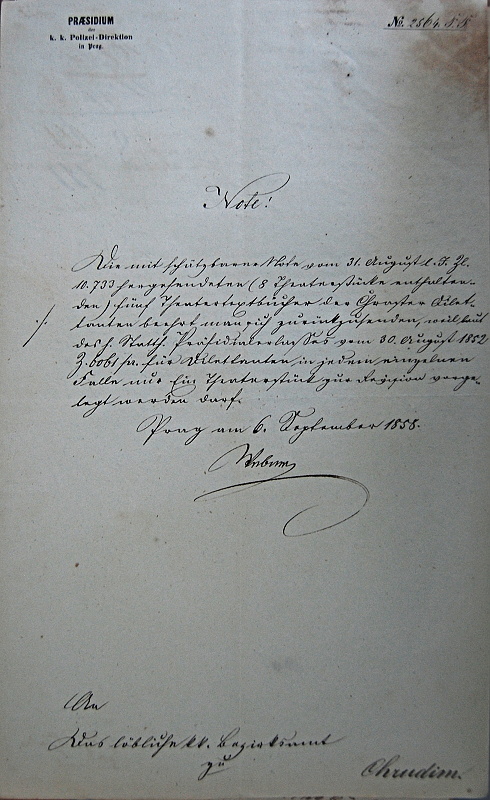 PRÆSIDIUM
der
k. k. Polizei-Direktion
in Prag.
No. 2564 P.P.
Note!
Die mit schätzbarer Note vom 31. August l. J. Zl.
10.733 hergesendeten (8 Theaterstücke enthalten-
den) fünf Theatertextbücher der Chraster Dilet-
tanten beehrt man sich zurückzusenden, weil laut
des h. Statth. Präsidialerlasses vom 30. August 1852
Z. 6061 pr. für Dilettanten in jedem einzelnen
Falle nur Ein Theaterstück zur Revision vorge-
legt werden darf.
Prag am 6. September 1858.
An
Das löbliche kk. Bezirksamt
zu
Chrudim.